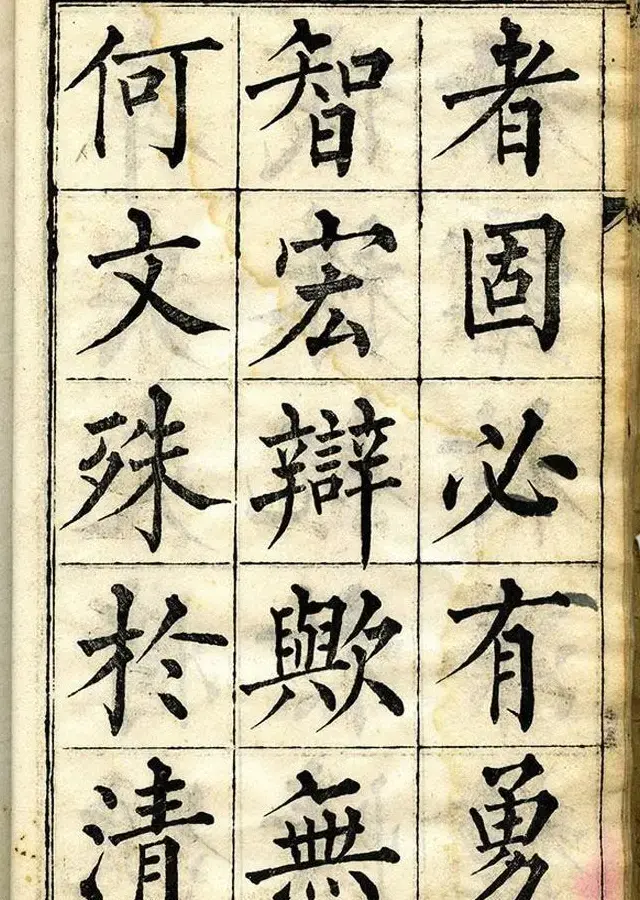 者固必有勇
智宏辯歟無
何文殊於清